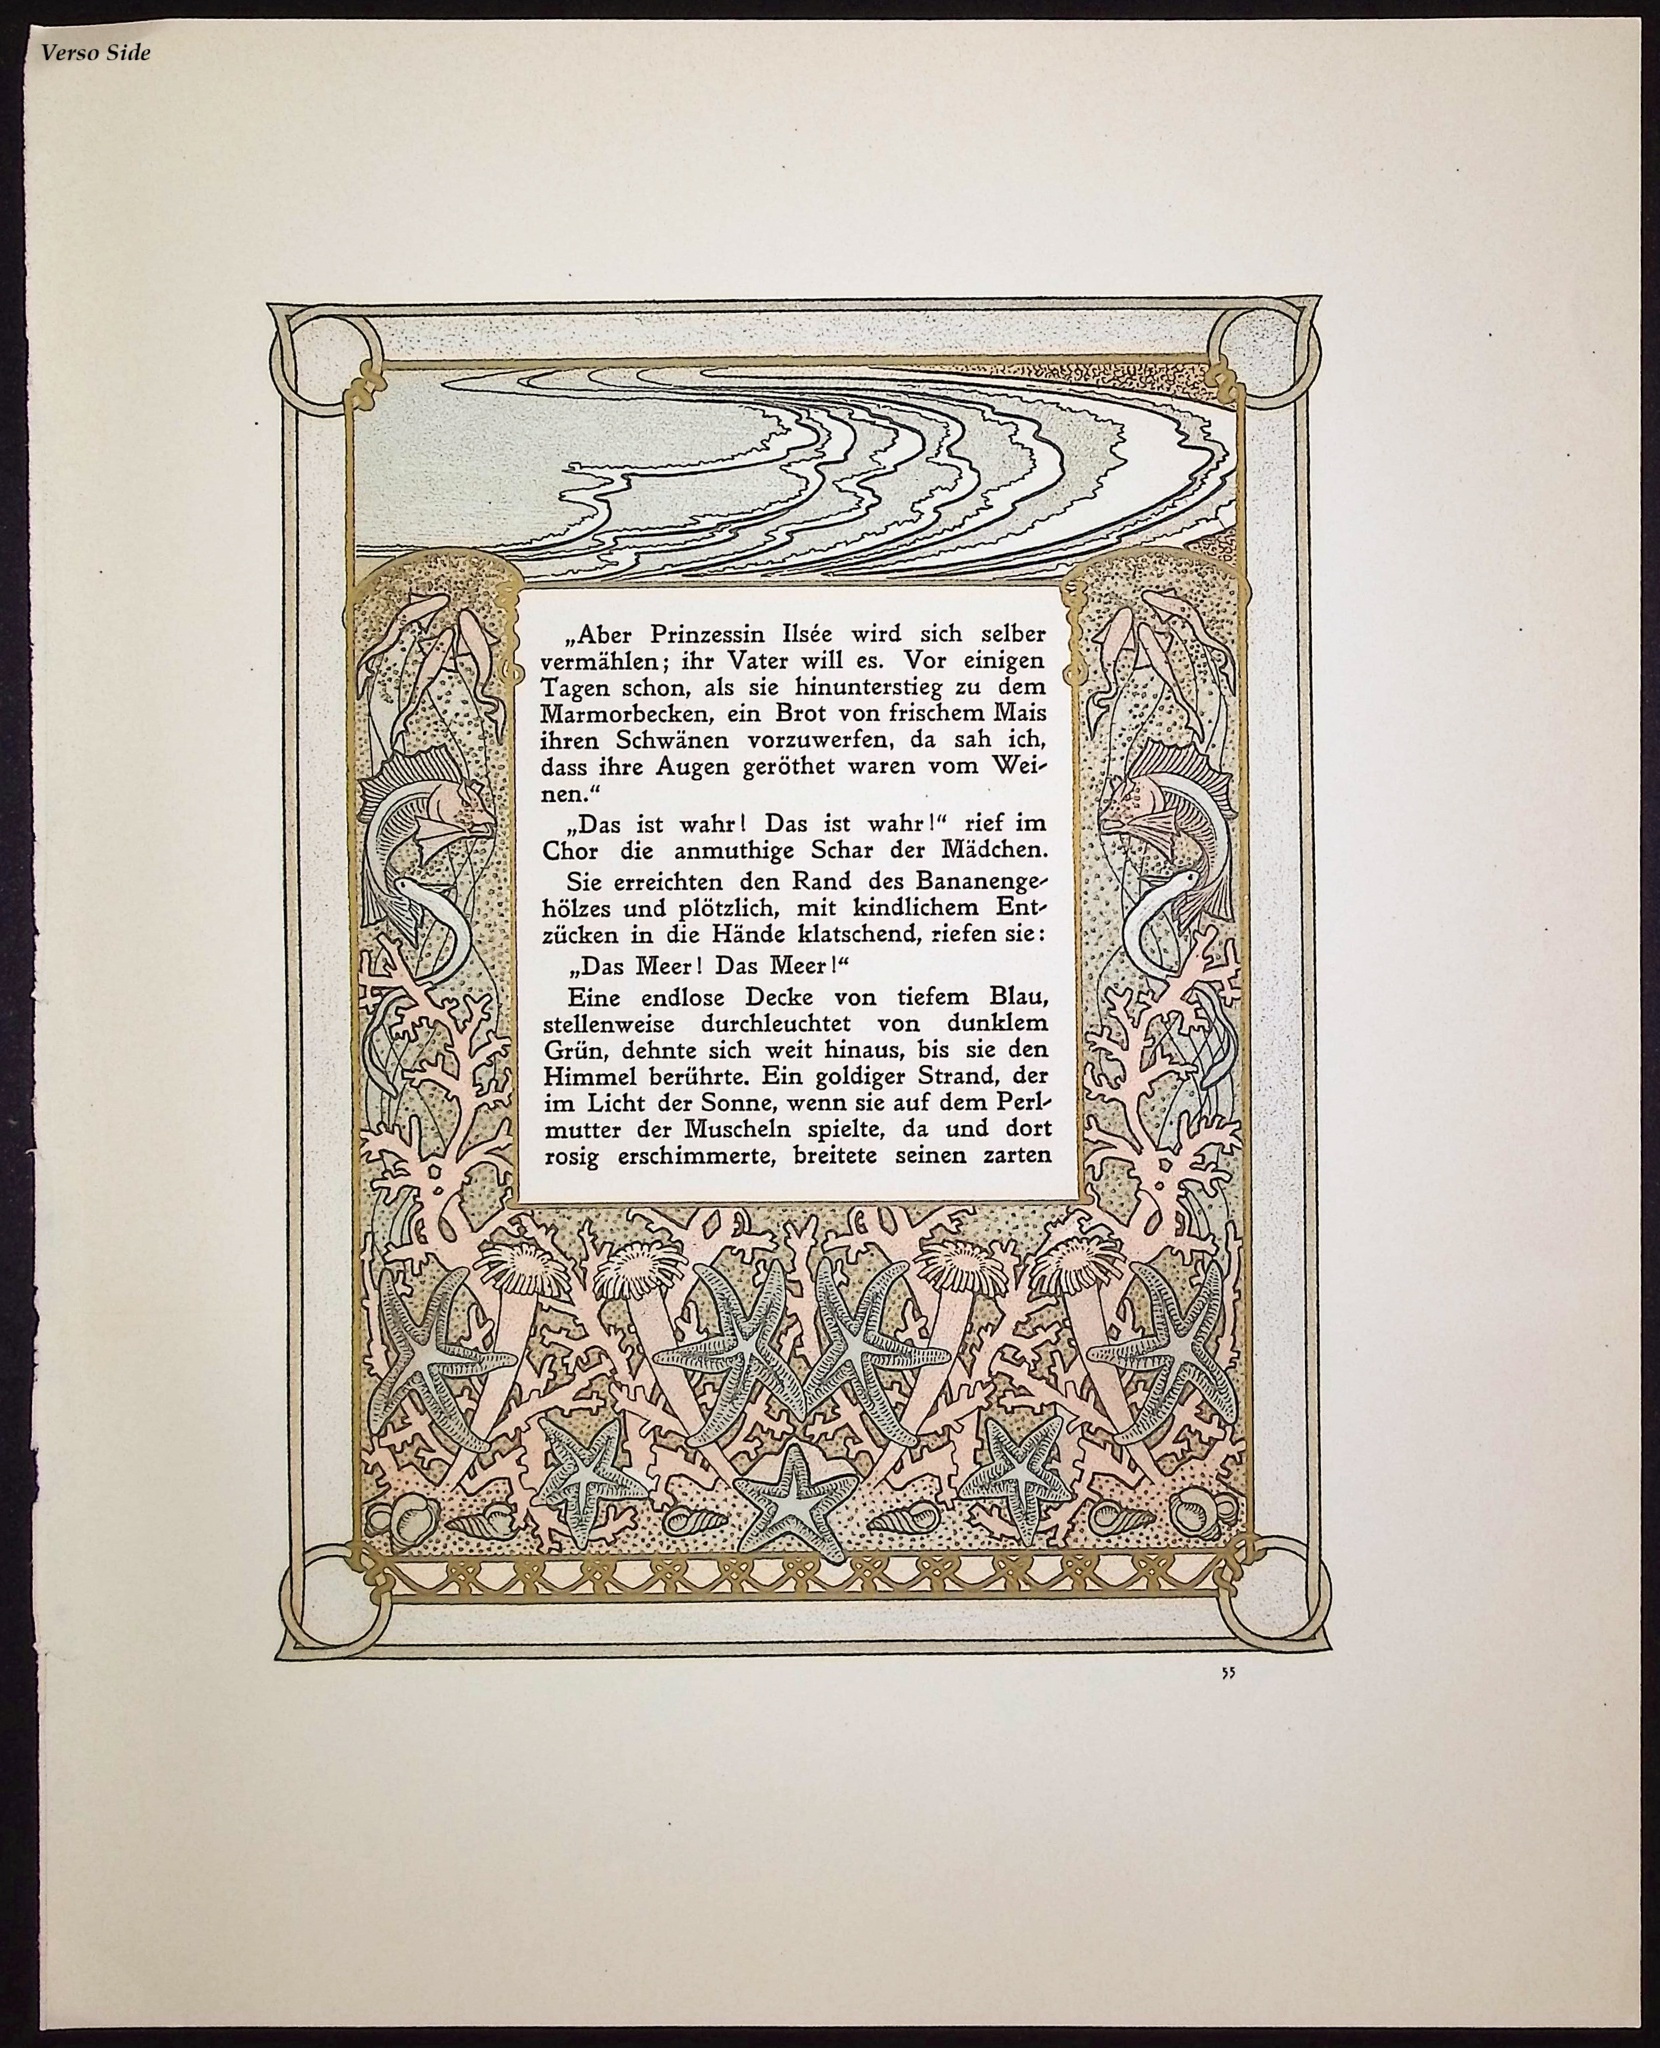 Verso Side
„Aber Prinzessin Ilsée wird sich selber
vermählen; ihr Vater will es. Vor einigen
Tagen schon, als sie hinunterstieg zu dem
Marmorbecken, ein Brot von frischem Mais
ihren Schwänen vorzuwerfen, da sah ich,
dass ihre Augen geröthet waren vom Wei-
nen.“
„Das ist wahr! Das ist wahr!“ rief im
Chor die anmuthige Schar der Mädchen.
Sie erreichten den Rand des Bananenge-
hölzes und plötzlich, mit kindlichem Ent-
zücken in die Hände klatschend, riefen sie:
„Das Meer! Das Meer!“
Eine endlose Decke von tiefem Blau,
stellenweise durchleuchtet von dunklem
Grün, dehnte sich weit hinaus, bis sie den
Himmel berührte. Ein goldiger Strand, der
im Licht der Sonne, wenn sie auf dem Perl-
mutter der Muscheln spielte, da und dort
rosig erschimmerte, breitete seinen zarten
55